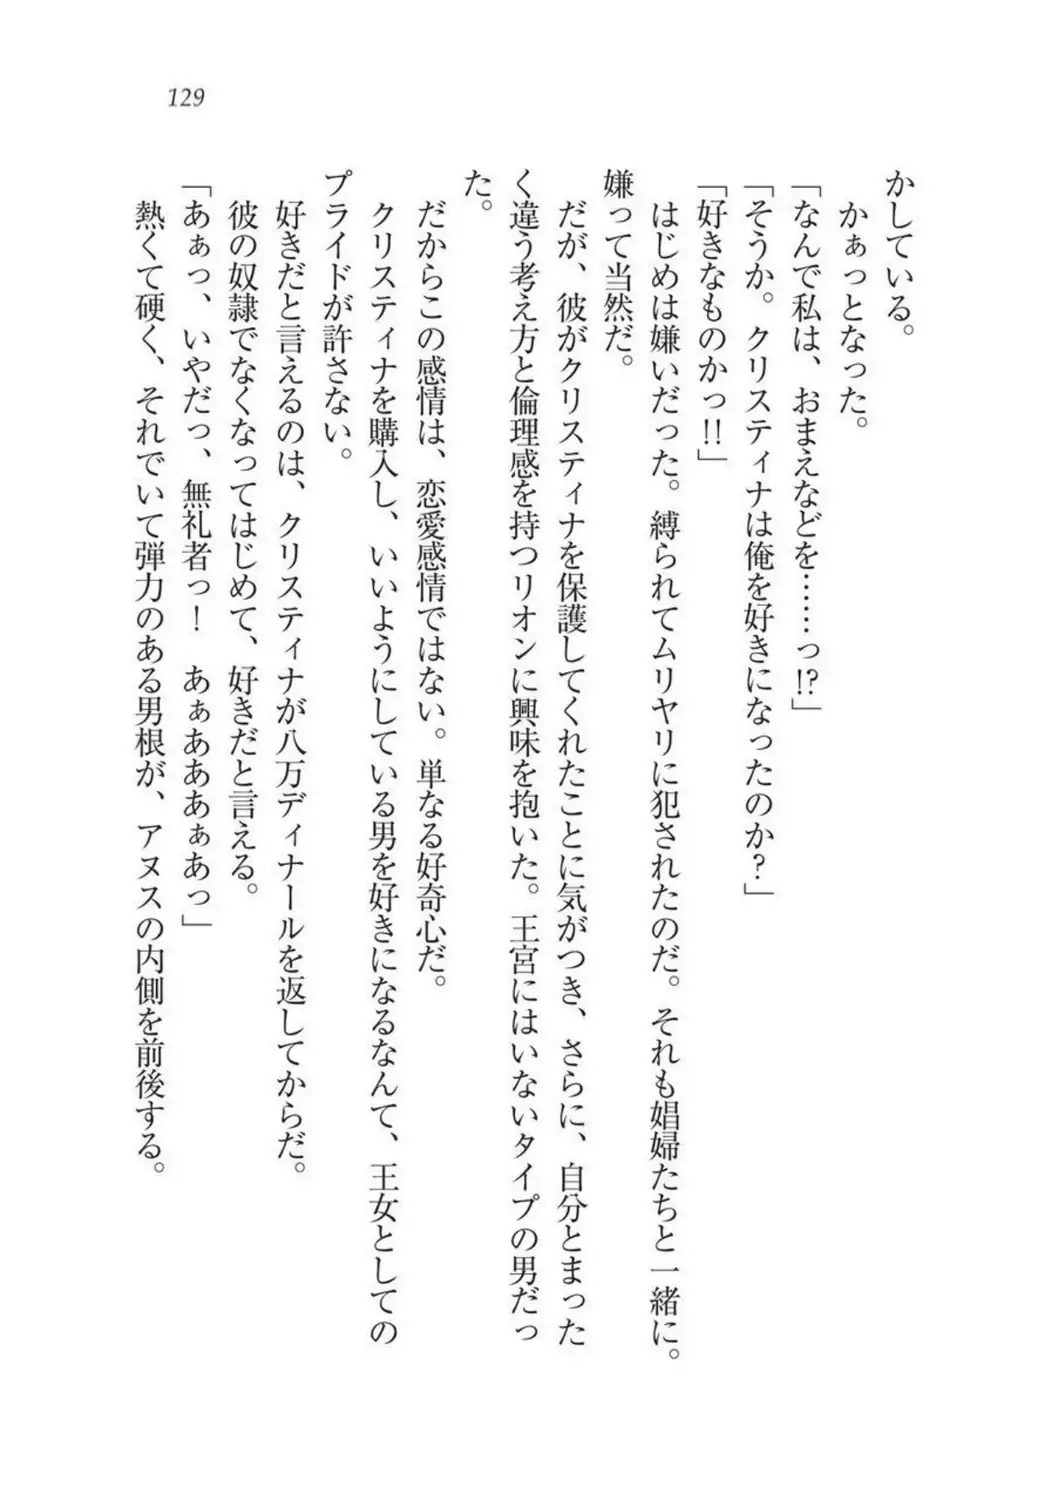 129
かしている。
かぁっとなった。
「なんで私は、おまえなどを……っ!?」
「そうか。クリスティナは俺を好きになったのか？」
「好きなものかっ!!」
はじめは嫌いだった。縛られてムリヤリに犯されたのだ。それも娼婦たちと一緒に。
嫌って当然だ。
だが、彼がクリスティナを保護してくれたことに気がつき、さらに、自分とまった
く違う考え方と倫理感を持つリオンに興味を抱いた。王宮にはいないタイプの男だっ
た。
だからこの感情は、恋愛感情ではない。単なる好奇心だ。
クリスティナを購入し、いいようにしている男を好きになるなんて、王女としての
プライドが許さない。
好きだと言えるのは、クリスティナが八万ディナールを返してからだ。
彼の奴隷でなくなってはじめて、好きだと言える。
「あぁっ、いやだっ、無礼者っ！　あぁあああぁあっ」
熱くて硬く、それでいて弾力のある男根が、アヌスの内側を前後する。